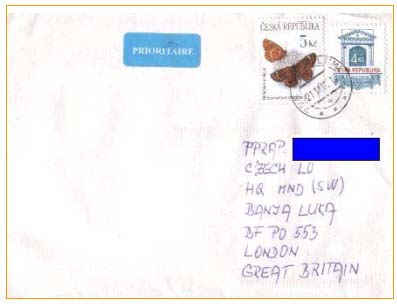 PRIORITAIRE
ČESKÁ REPUBLIKA
5 Kč
4 Kč
ČESKÁ REPUBLIKA
PPRAP.
CZECH LO
HQ MND (SW)
BANJA LUKA
BF PO 553
LONDON
GREAT BRITAIN